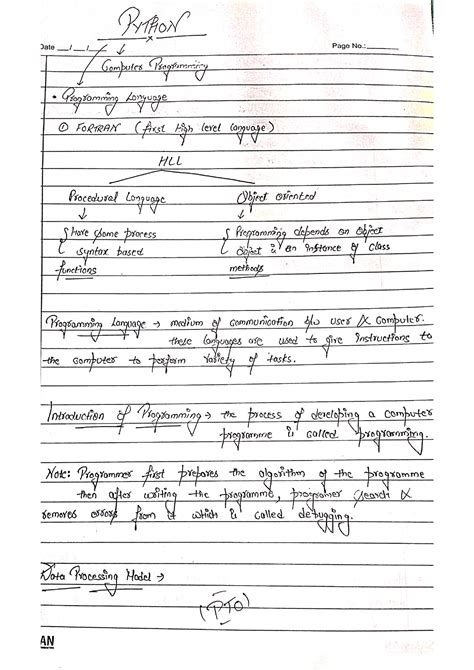 PYTHON
Date __/__/__ Page No.:
Computer Programming
• Programming Language
① FORTRAN (first High level language)
HLL
Procedural Language Object oriented
{ Have some process { Programming depends on object
syntax based object is an instance of class
functions methods
Programming Language → medium of communication b/w user & computer.
these languages are used to give instructions to
the computer to perform variety of tasks.
Introduction of Programming → the process of developing a computer
programme is called programming.
Note: Programmer first prepares the algorithm of the programme
then after writing the programme, programer search &
removes errors from it which is called debugging.
Data Processing Model →
(PTO)
AN